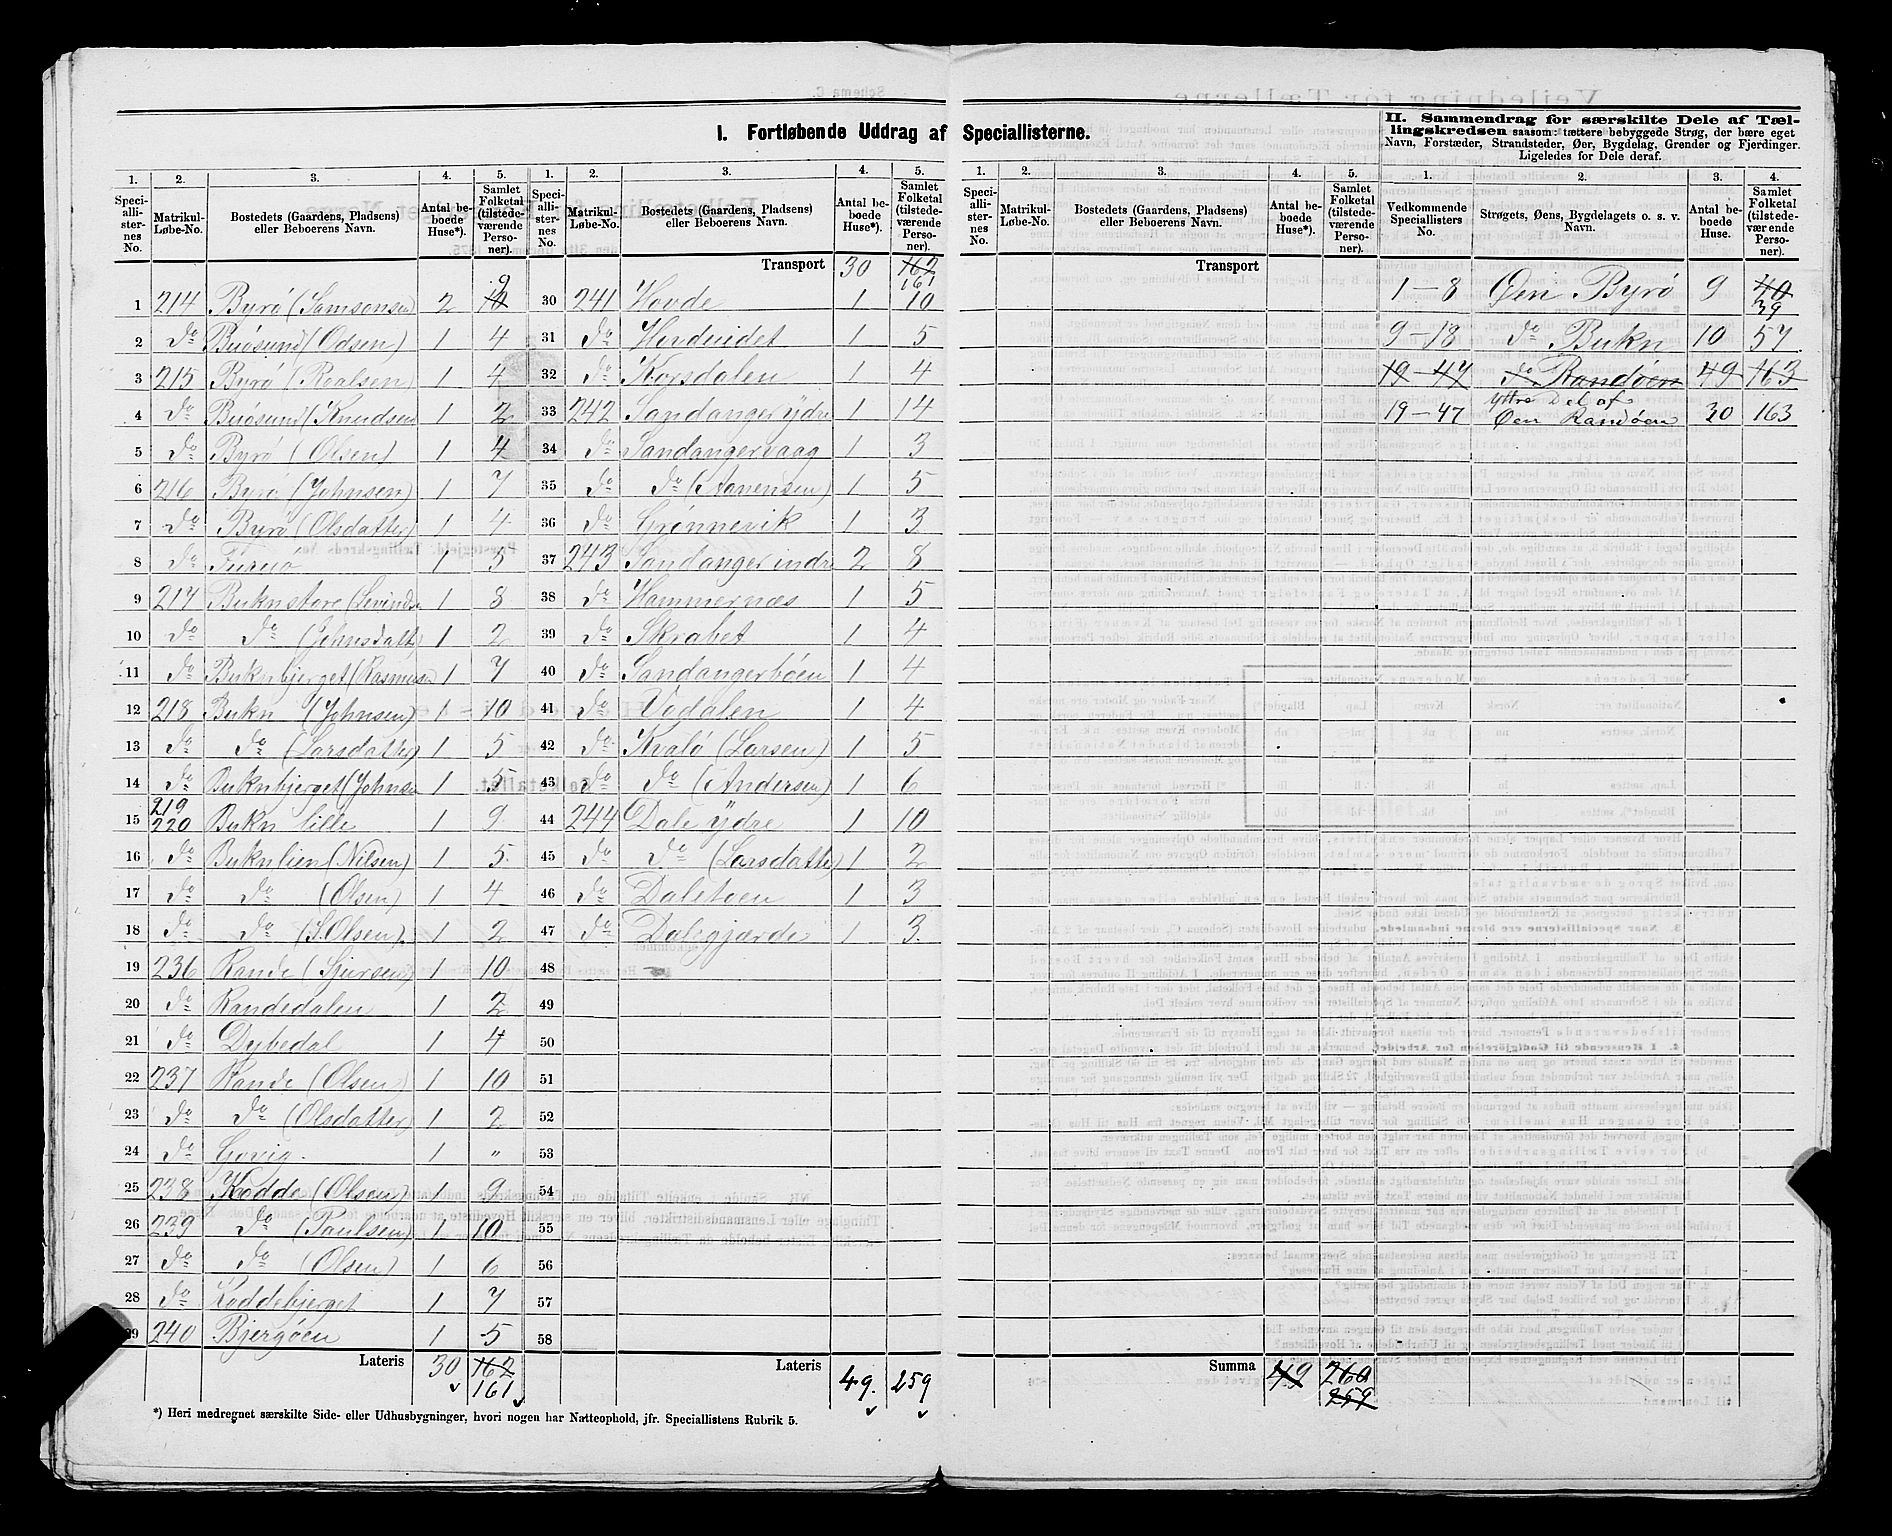 I. Fortløbende Uddrag af Speciallisterne.
II. Sammendrag for særskilte Dele af Tællingskredsen saasom: tættere bebyggede Strøg, der bære eget
Navn, Forstæder, Strandsteder, Øer, Bygdelag, Grender og Fjerdinger.
Ligeledes for Dele deraf.
1. 2. 3. 4. 5. 1. 2. 3. 4. 5. 1. 2. 3. 4. 5. 1. 2. 3. 4.
Speciallisternes No. Matrikul-Løbe-No. Bostedets (Gaardens, Pladsens) eller Beboerens Navn. Antal beboede Huse*). Samlet Folketal (tilstedeværende Personer).
Speciallisternes No. Matrikul-Løbe-No. Bostedets (Gaardens, Pladsens) eller Beboerens Navn. Antal beboede Huse*). Samlet Folketal (tilstedeværende Personer).
Speciallisternes No. Matrikul-Løbe-No. Bostedets (Gaardens, Pladsens) eller Beboerens Navn. Antal beboede Huse*). Samlet Folketal (tilstedeværende Personer).
Vedkommende Speciallisters No. Strøgets, Øens, Bygdelagets o. s. v. Navn. Antal beboede Huse. Samlet Folketal (tilstedeværende Personer).
1 214 Byrø (Samsonsen) 2 10 9
2 do Buøsund (Odsen) 1 4
3 215 Byrø (Roalsen) 1 4
4 do Buøsund (Knudsen 1 2
5 do Byrø (Olsen) 1 4
6 216 Byrø (Johnsen) 1 7
7 do Byrø (Olsdatter) 1 4
8 do 1 5
9 217 Buknstore (Levinds 1 8
10 do do (Johnsdatt) 1 2
11 do Buknbjerget (Rasmusse 1 7
12 218 Bukn (Johnsen) 1 10
13 do do (Larsdatter) 1 5
14 do Buknbjerget (Johnse 1 5
15 219 220 Bukn lille 1 9
16 do Buknlien (Nilsen) 1 5
17 do do (Olsen) 1 4
18 do do (S. Olsen) 1 2
19 236 Rande (Sjursen) 1 10
20 do Randedalen 1 2
21 do Dybedal 1 4
22 237 Rande (Olsen) 1 10
23 do do (Olsdatter) 1 2
24 do Govig 1 "
25 238 Kodde (Olsen) 1 9
26 239 do (Paulsen) 1 10
27 do do (Olsen) 1 6
28 do Koddebjerget 1 7
29 240 Bjergøen 1 5
Lateris 30 162 161
Transport 30 162 161
30 241 Hovde 1 10
31 do Hovdeidet 1 5
32 do Korsdalen 1 4
33 242 Sandanger ydre 1 14
34 do Sandangervaag 1 3
35 do do (Aanensen) 1 5
36 do Grønnevik 1 3
37 243 Sandanger indre 2 8
38 do Hammernæs 1 5
39 do Skrabet 1 4
40 do Sandangerbøen 1 4
41 do Vodalen 1 4
42 do Kvalø (Larsen) 1 5
43 do do (Andersen) 1 6
44 244 Dale ydre 1 10
45 do do (Larsdatter) 1 2
46 do Daletoen 1 3
47 do Dalegjærde 1 3
48
49
50
51
52
53
54
55
56
57
58
Lateris 49. 259
Transport
Summa 49 260 259
1 - 8 Øen Byrø 9 40 39
9 - 18 do Bukn 10 57
19 - 47 do Randøen 49 163
19 - 47 Yttre Del af Øen Randøen 30 163
*) Heri medregnet særskilte Side- eller Udhusbygninger, hvori nogen har Natteophold, jfr. Speciallistens Rubrik 5.